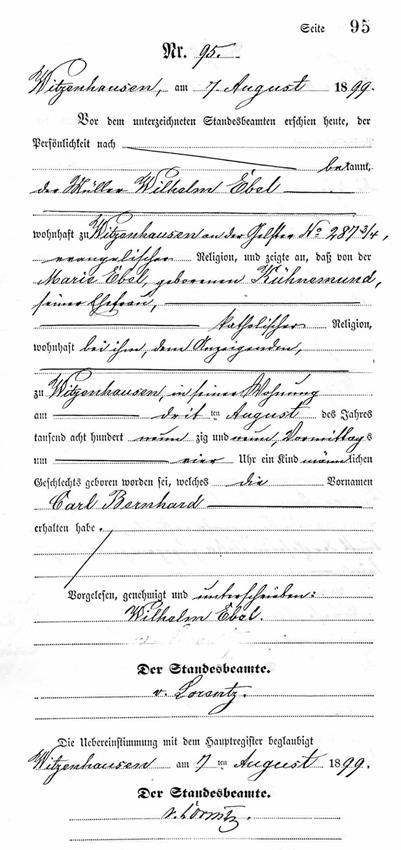 Seite 95
Nr. 95.
Witzenhausen, am 7. August 1899.
Vor dem unterzeichneten Standesbeamten erschien heute, der
Persönlichkeit nach
bekannt,
der Müller Wilhelm Ebel
wohnhaft zu Witzenhausen an der Gelster No 287 3/4,
evangelischer Religion, und zeigte an, daß von der
Marie Ebel, geborenen Kühnemund,
seiner Ehefrau,
katholischer Religion,
wohnhaft bei ihm, dem Anzeigenden,
zu Witzenhausen, in seiner Wohnung
am dritten August des Jahres
tausend acht hundert neun zig und neun, Vormittags
um vier Uhr ein Kind männlichen
Geschlechts geboren worden sei, welches die Vornamen
Carl Bernhard
erhalten habe.
Vorgelesen, genehmigt und unterschrieben:
Wilhelm Ebel.
Der Standesbeamte.
v.
Die Uebereinstimmung mit dem Hauptregister beglaubigt
Witzenhausen am 7ten August 1899.
Der Standesbeamte.
v.